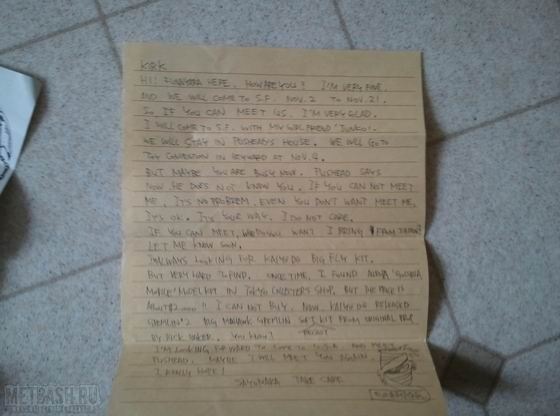 KIRK
HI! HERE. HOW ARE YOU? I'M VERY FINE.
AND WE WILL COME TO S.F. NOV. 2 TO NOV. 21.
SO IF YOU CAN MEET US. I'M VERY GLAD.
I WILL COME TO S.F. WITH MY GIRL FRIEND "JUNKO".
WE WILL STAY IN PUSHEAD'S HOUSE. WE WILL GO TO
TOY CONVENTION IN HEYWARD AT NOV. 4.
BUT MAYBE YOU ARE BUSY NOW. PUSHEAD SAYS
NOW HE DOES NOT KNOW YOU. IF YOU CAN NOT MEET
ME, IT'S NO PROBREM. EVEN YOU DON'T WANT MEET ME,
IT'S OK. IT'S YOUR WAY. I DO NOT CARE.
IF YOU CAN MEET, WHAT DO YOU WANT I BRING FROM JAPAN?
LET ME KNOW SOON.
I'M ALWAYS LOOKING FOR KAIYODO BIG FLY KIT.
BUT VERY HARD FIND. ONCE TIME, I FOUND AURORA
MODEL KIT IN TOKYO COLLECTERS SHOP. BUT THE PRICE IS
ABOUT I CAN NOT BUY. NOW KAIYODO RELEASED
GREMLIN'2 BIG MOHAWK GREMLIN KIT FROM ORIGINAL
BY RICK BAKER. YOU KNOW?
I'M LOOKING FORWARD TO COME TO AND MEET
PUSHEAD. MAYBE I WILL MEET YOU AGAIN.
I REALLY HOPE!
SAYONARA TAKE CARE
METBASH.RU